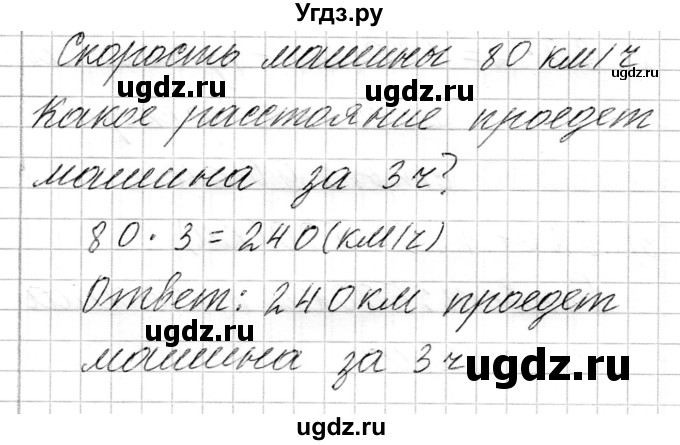 Угдз.ру
Скорость машины 80 км/ч
ugdz.ru ugdz.ru ugdz.ru
Какое расстояние проедет
машина за 3ч?
ugdz.ru ugdz.ru
80 · 3 = 240 (км/ч)
Ответ: 240 км проедет
ugdz.ru ugdz.ru
машина за 3ч
ugdz.ru
ugdz.ru